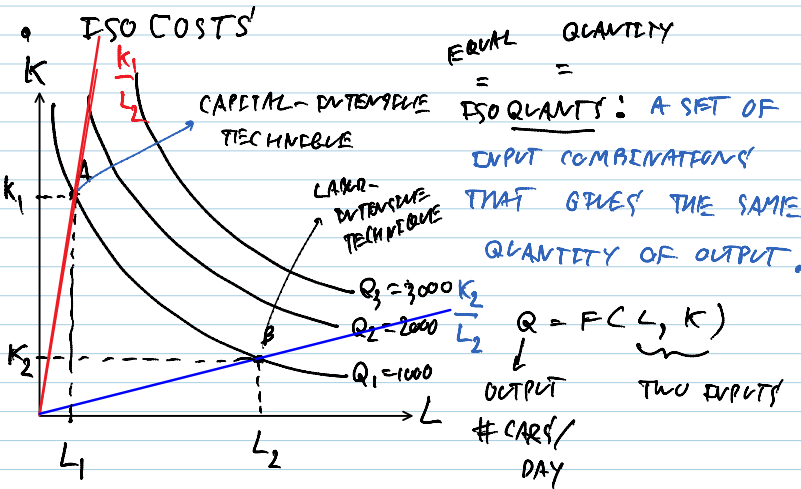 ISO COSTS
K
K1
L2
CAPITAL-INTENSIVE
TECHNIQUE
A
K1
LABOR-
INTENSIVE
TECHNIQUE
Q3 = 3000
K2
L2
Q2 = 2000
B
K2
Q1 = 1000
L
L1
L2
EQUAL QUANTITY
= =
ISOQUANTS: A SET OF
INPUT COMBINATIONS
THAT GIVES THE SAME
QUANTITY OF OUTPUT.
Q = F(L, K)
OUTPUT TWO INPUTS
# CARS/
DAY